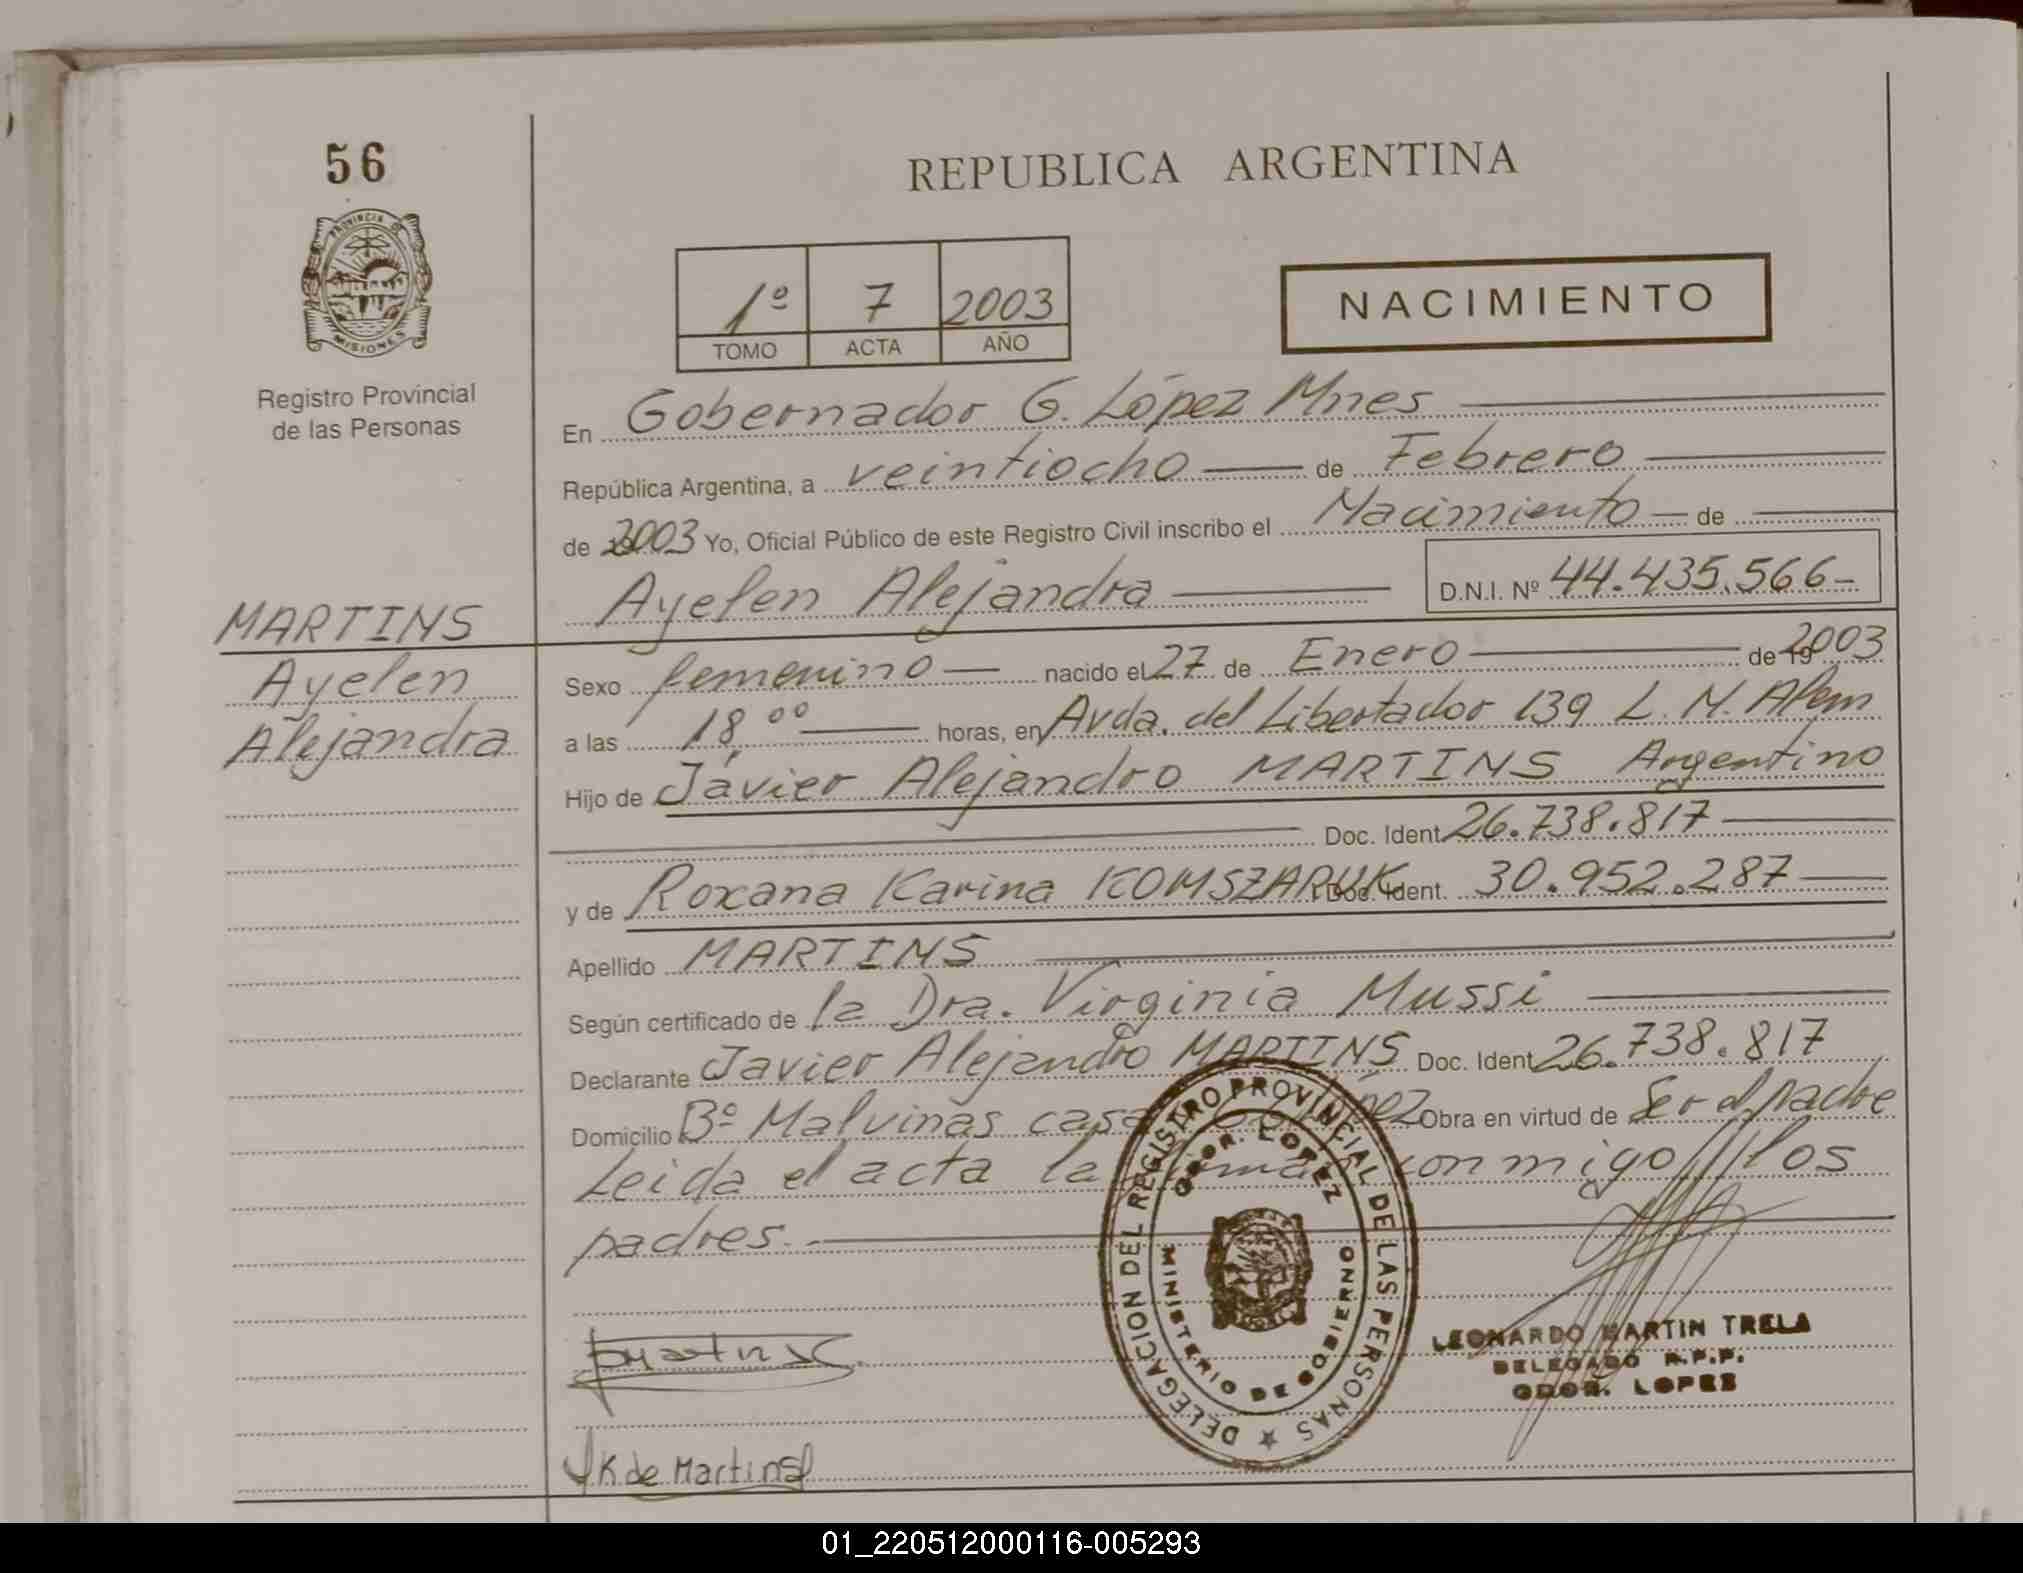 56
REPUBLICA ARGENTINA
PROVINCIA DE
MISIONES
Registro Provincial
de las Personas
1º 7 2003
TOMO ACTA AÑO
NACIMIENTO
En Gobernador G. López Mnes
República Argentina, a veintiocho de Febrero
de 2003 Yo, Oficial Público de este Registro Civil inscribo el Nacimiento de
Ayelen Alejandra D.N.I. Nº 44.435.566
MARTINS
Ayelen
Alejandra
Sexo femenino nacido el 27 de Enero de 19 2003
a las 18,00 horas, en Avda. del Libertador 139 L. N. Alem
Hijo de Javier Alejandro MARTINS Argentino
Doc. Ident. 26.738.817
y de Roxana Karina KOMSZARUK Doc. Ident. 30.952.287
Apellido MARTINS
Según certificado de la Dra. Virginia Mussi
Declarante Javier Alejandro MARTINS Doc. Ident. 26.738.817
Domicilio Bº Malvinas casa Obra en virtud de Ser el padre
Leida el acta la conmigo los
padres.-
DELEGACION DEL REGISTRO PROVINCIAL DE LAS PERSONAS
GDOR. LOPEZ
MINISTERIO DE GOBIERNO
Martins
LEONARDO MARTIN TRELA
DELEGADO R.P.P.
GDOR. LOPEZ
K de Martins
01_220512000116-005293